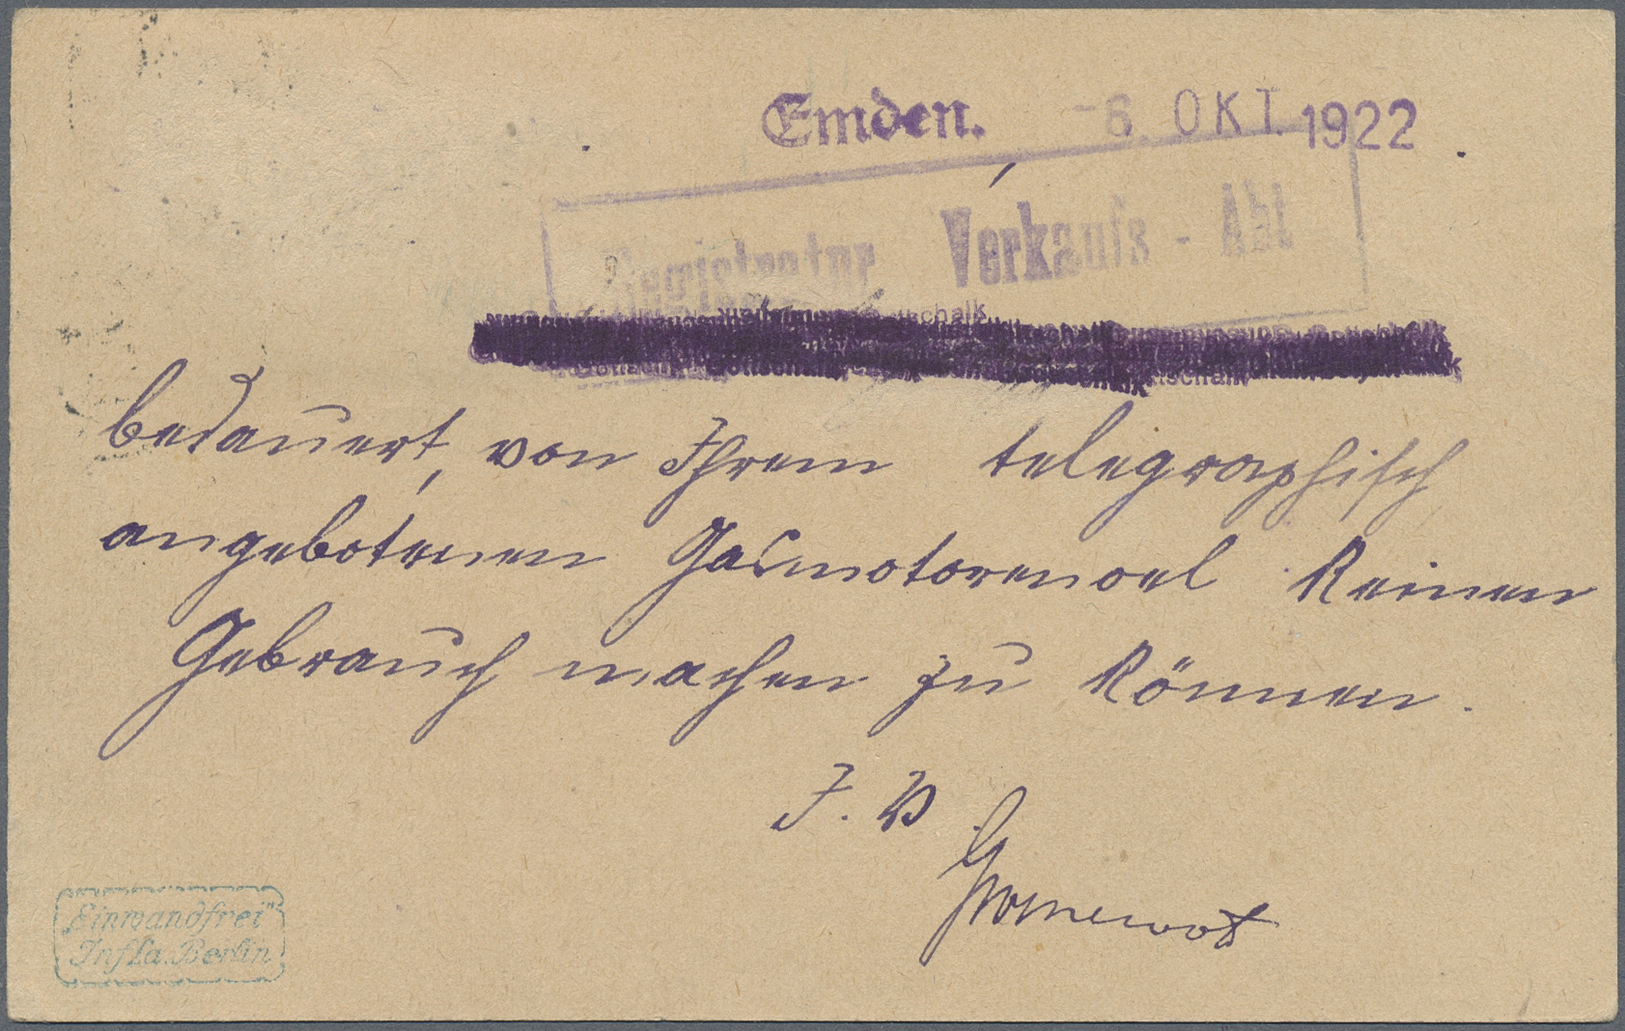 Emden. -6. OKT. 1922
Registratur Verkaufs - Abt
bedauert, von Ihrem telegraphisch
angebotenen Gasmotorenoel keinen
Gebrauch machen zu können.
I. V.
„Einwandfrei"
Infla. Berlin